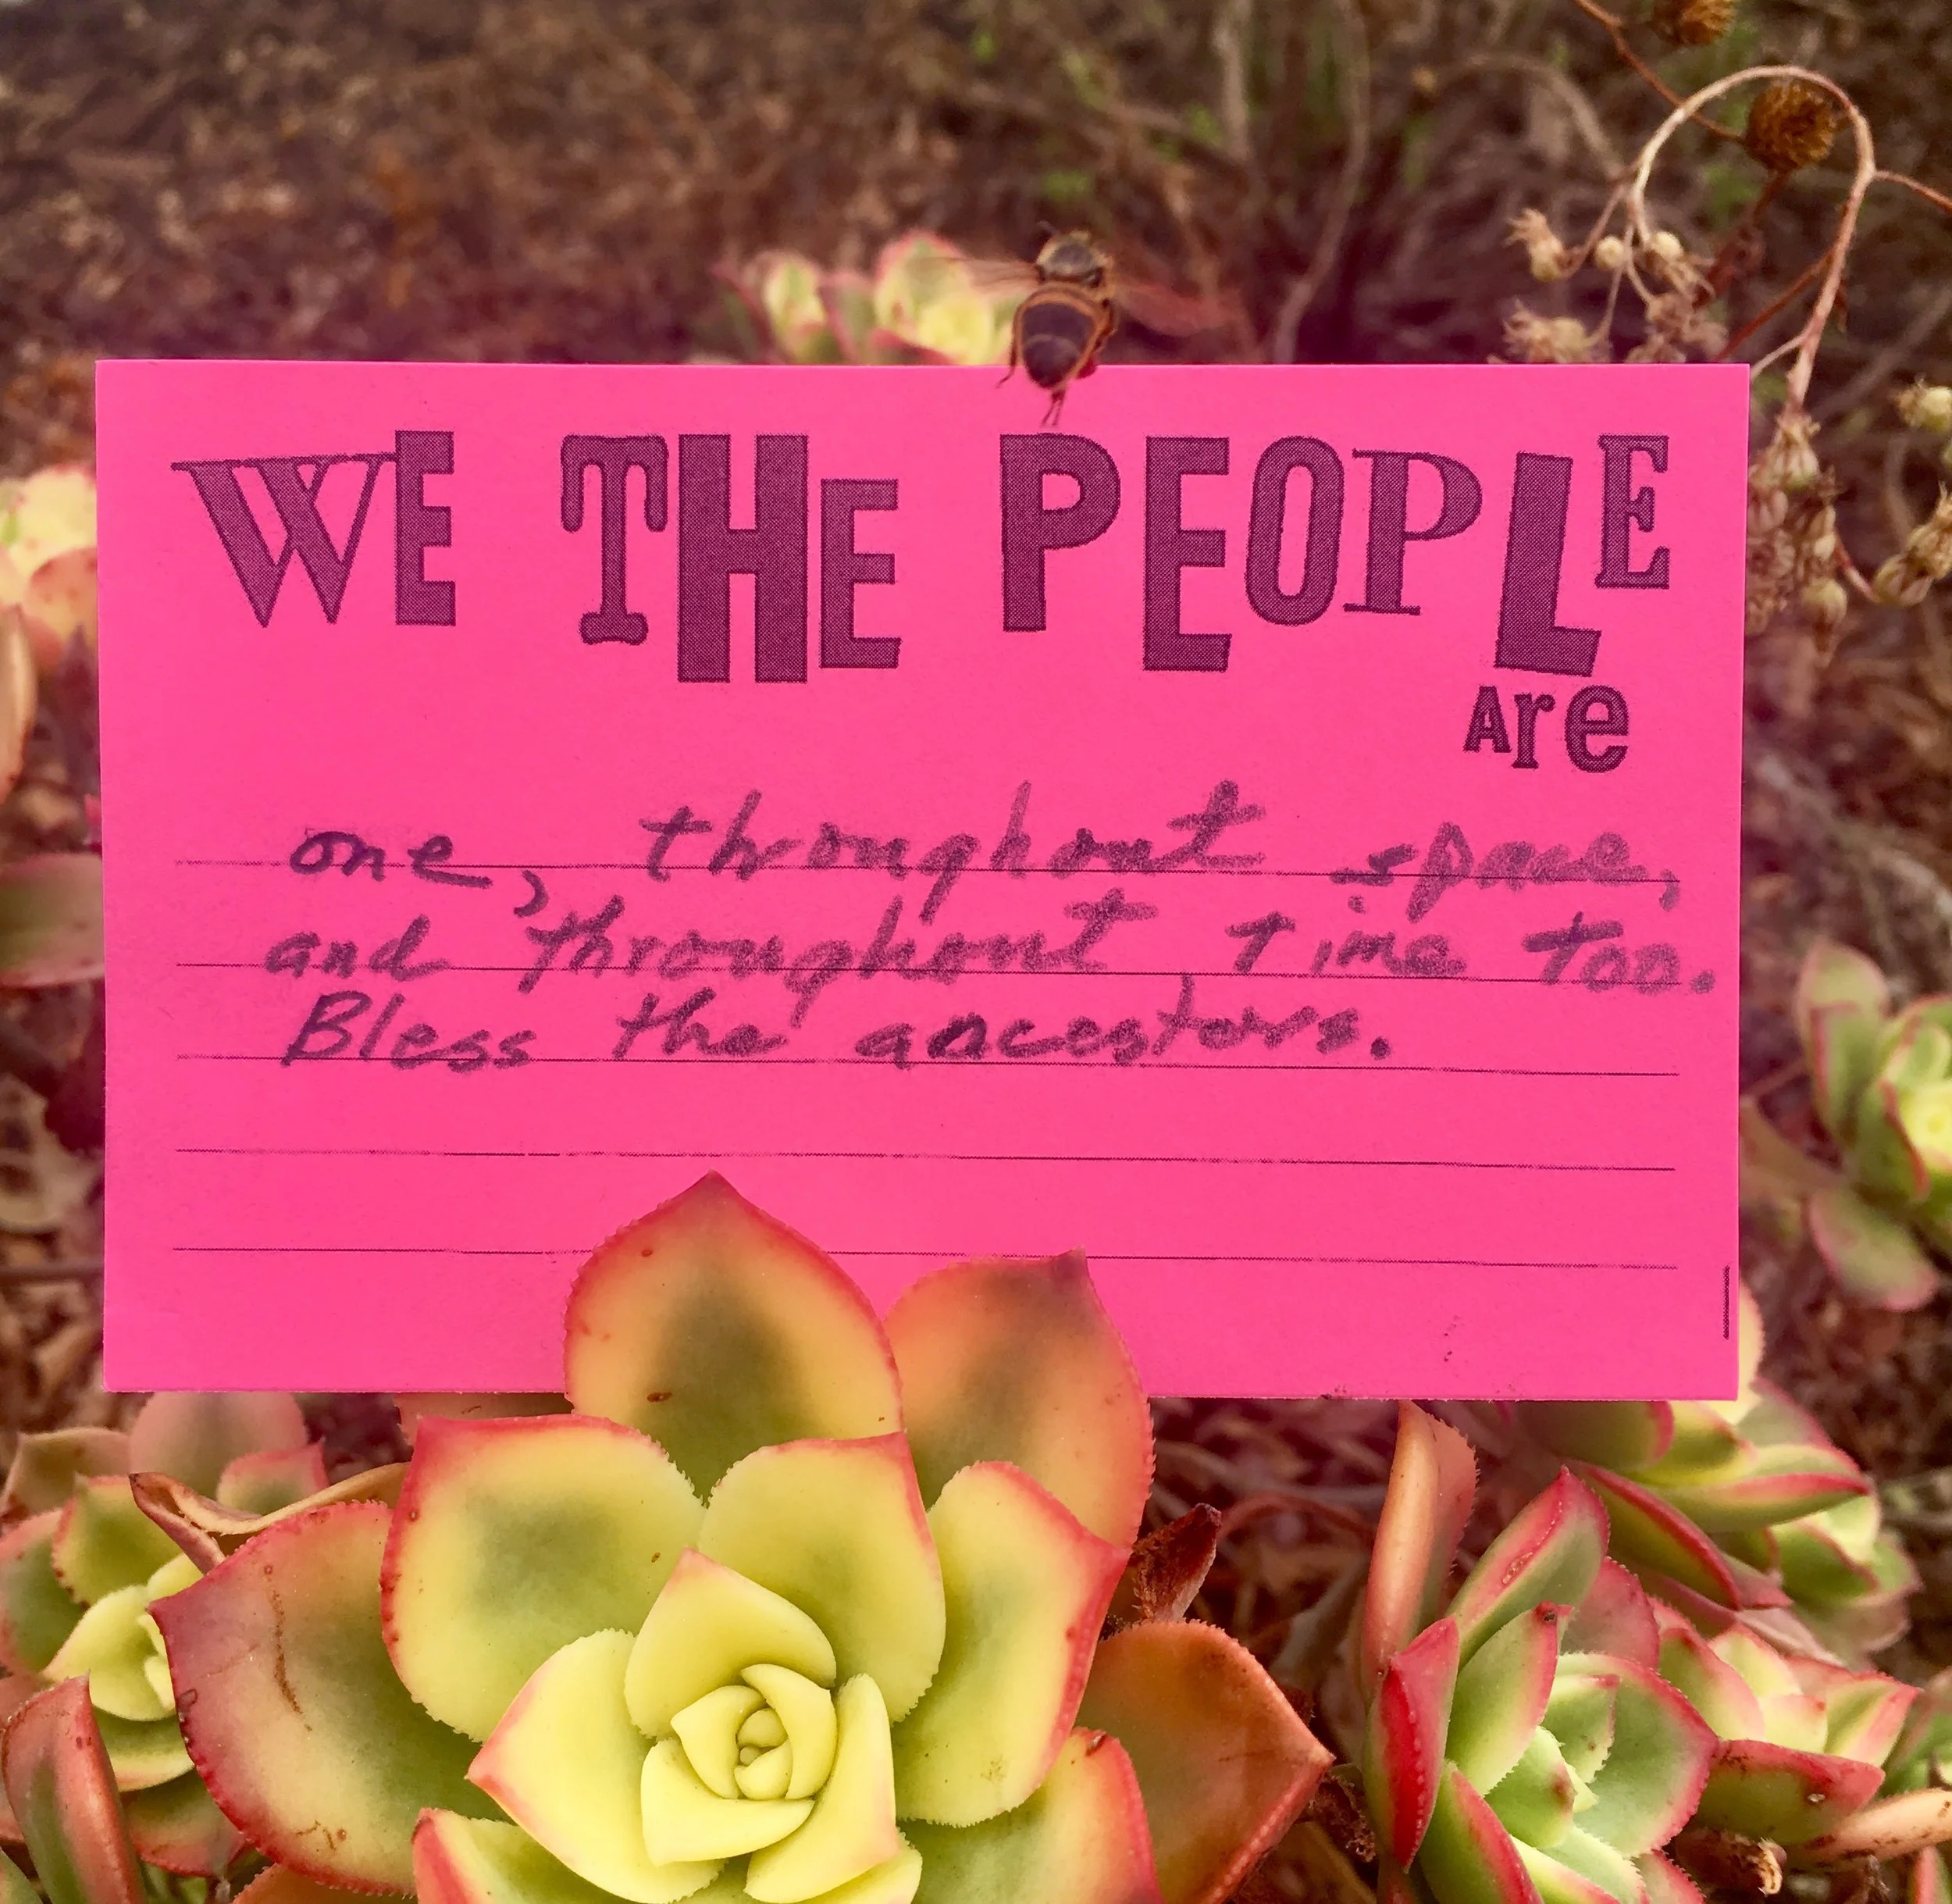 WE THE PEOPLE
Are
one, throughout space,
and throughout time too.
Bless the ancestors.